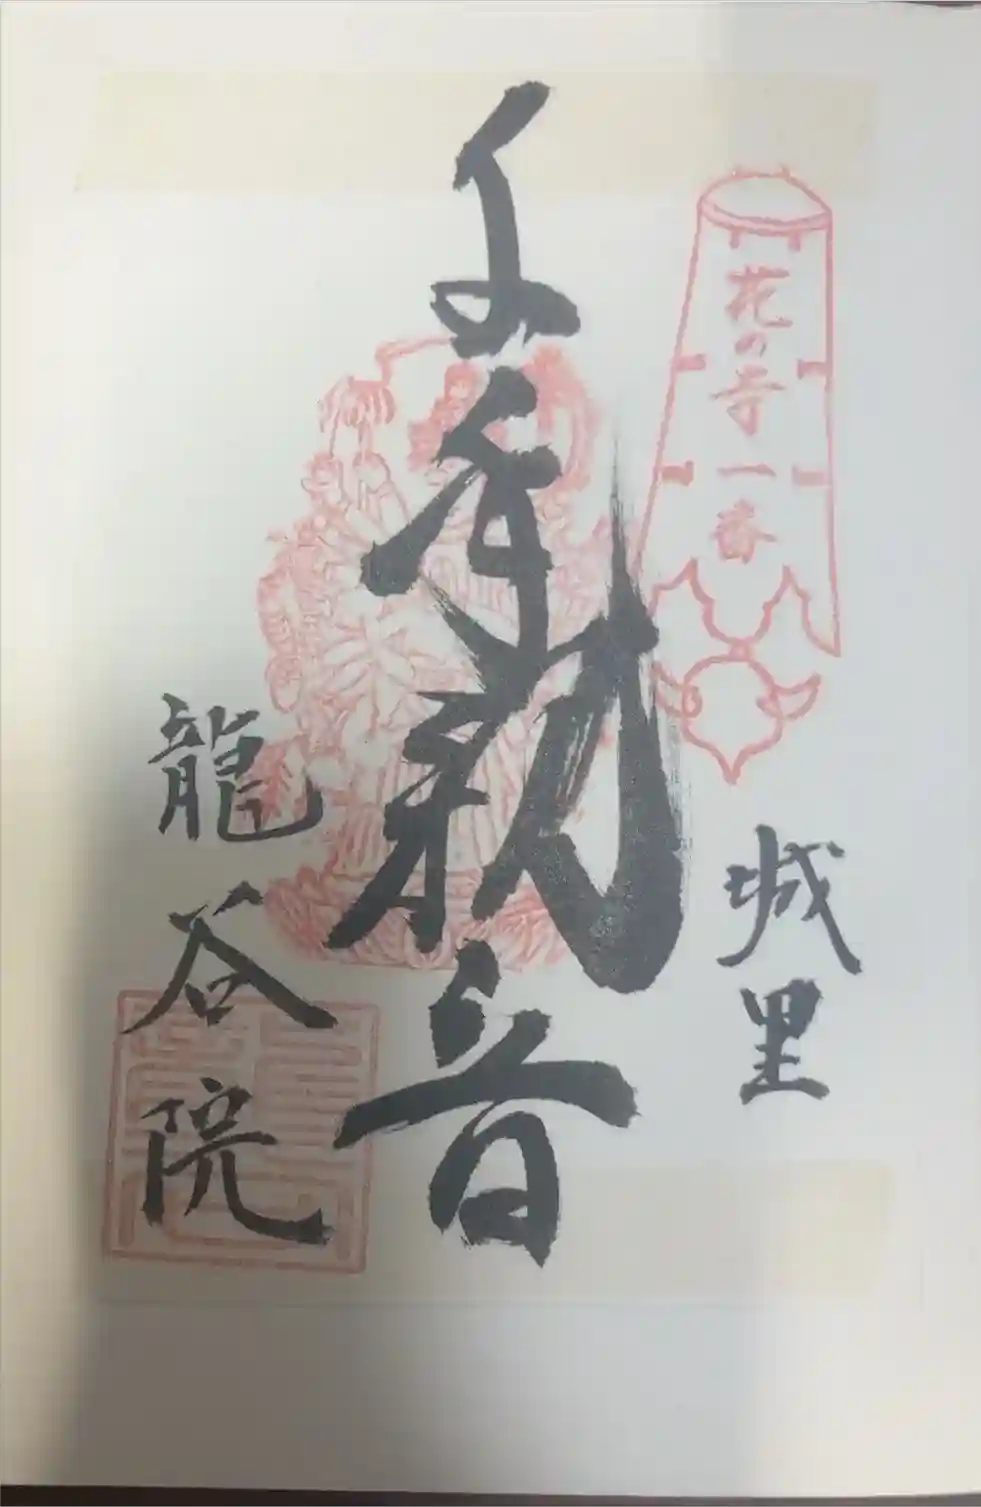 花の寺一番
城里
千手観音
龍谷院